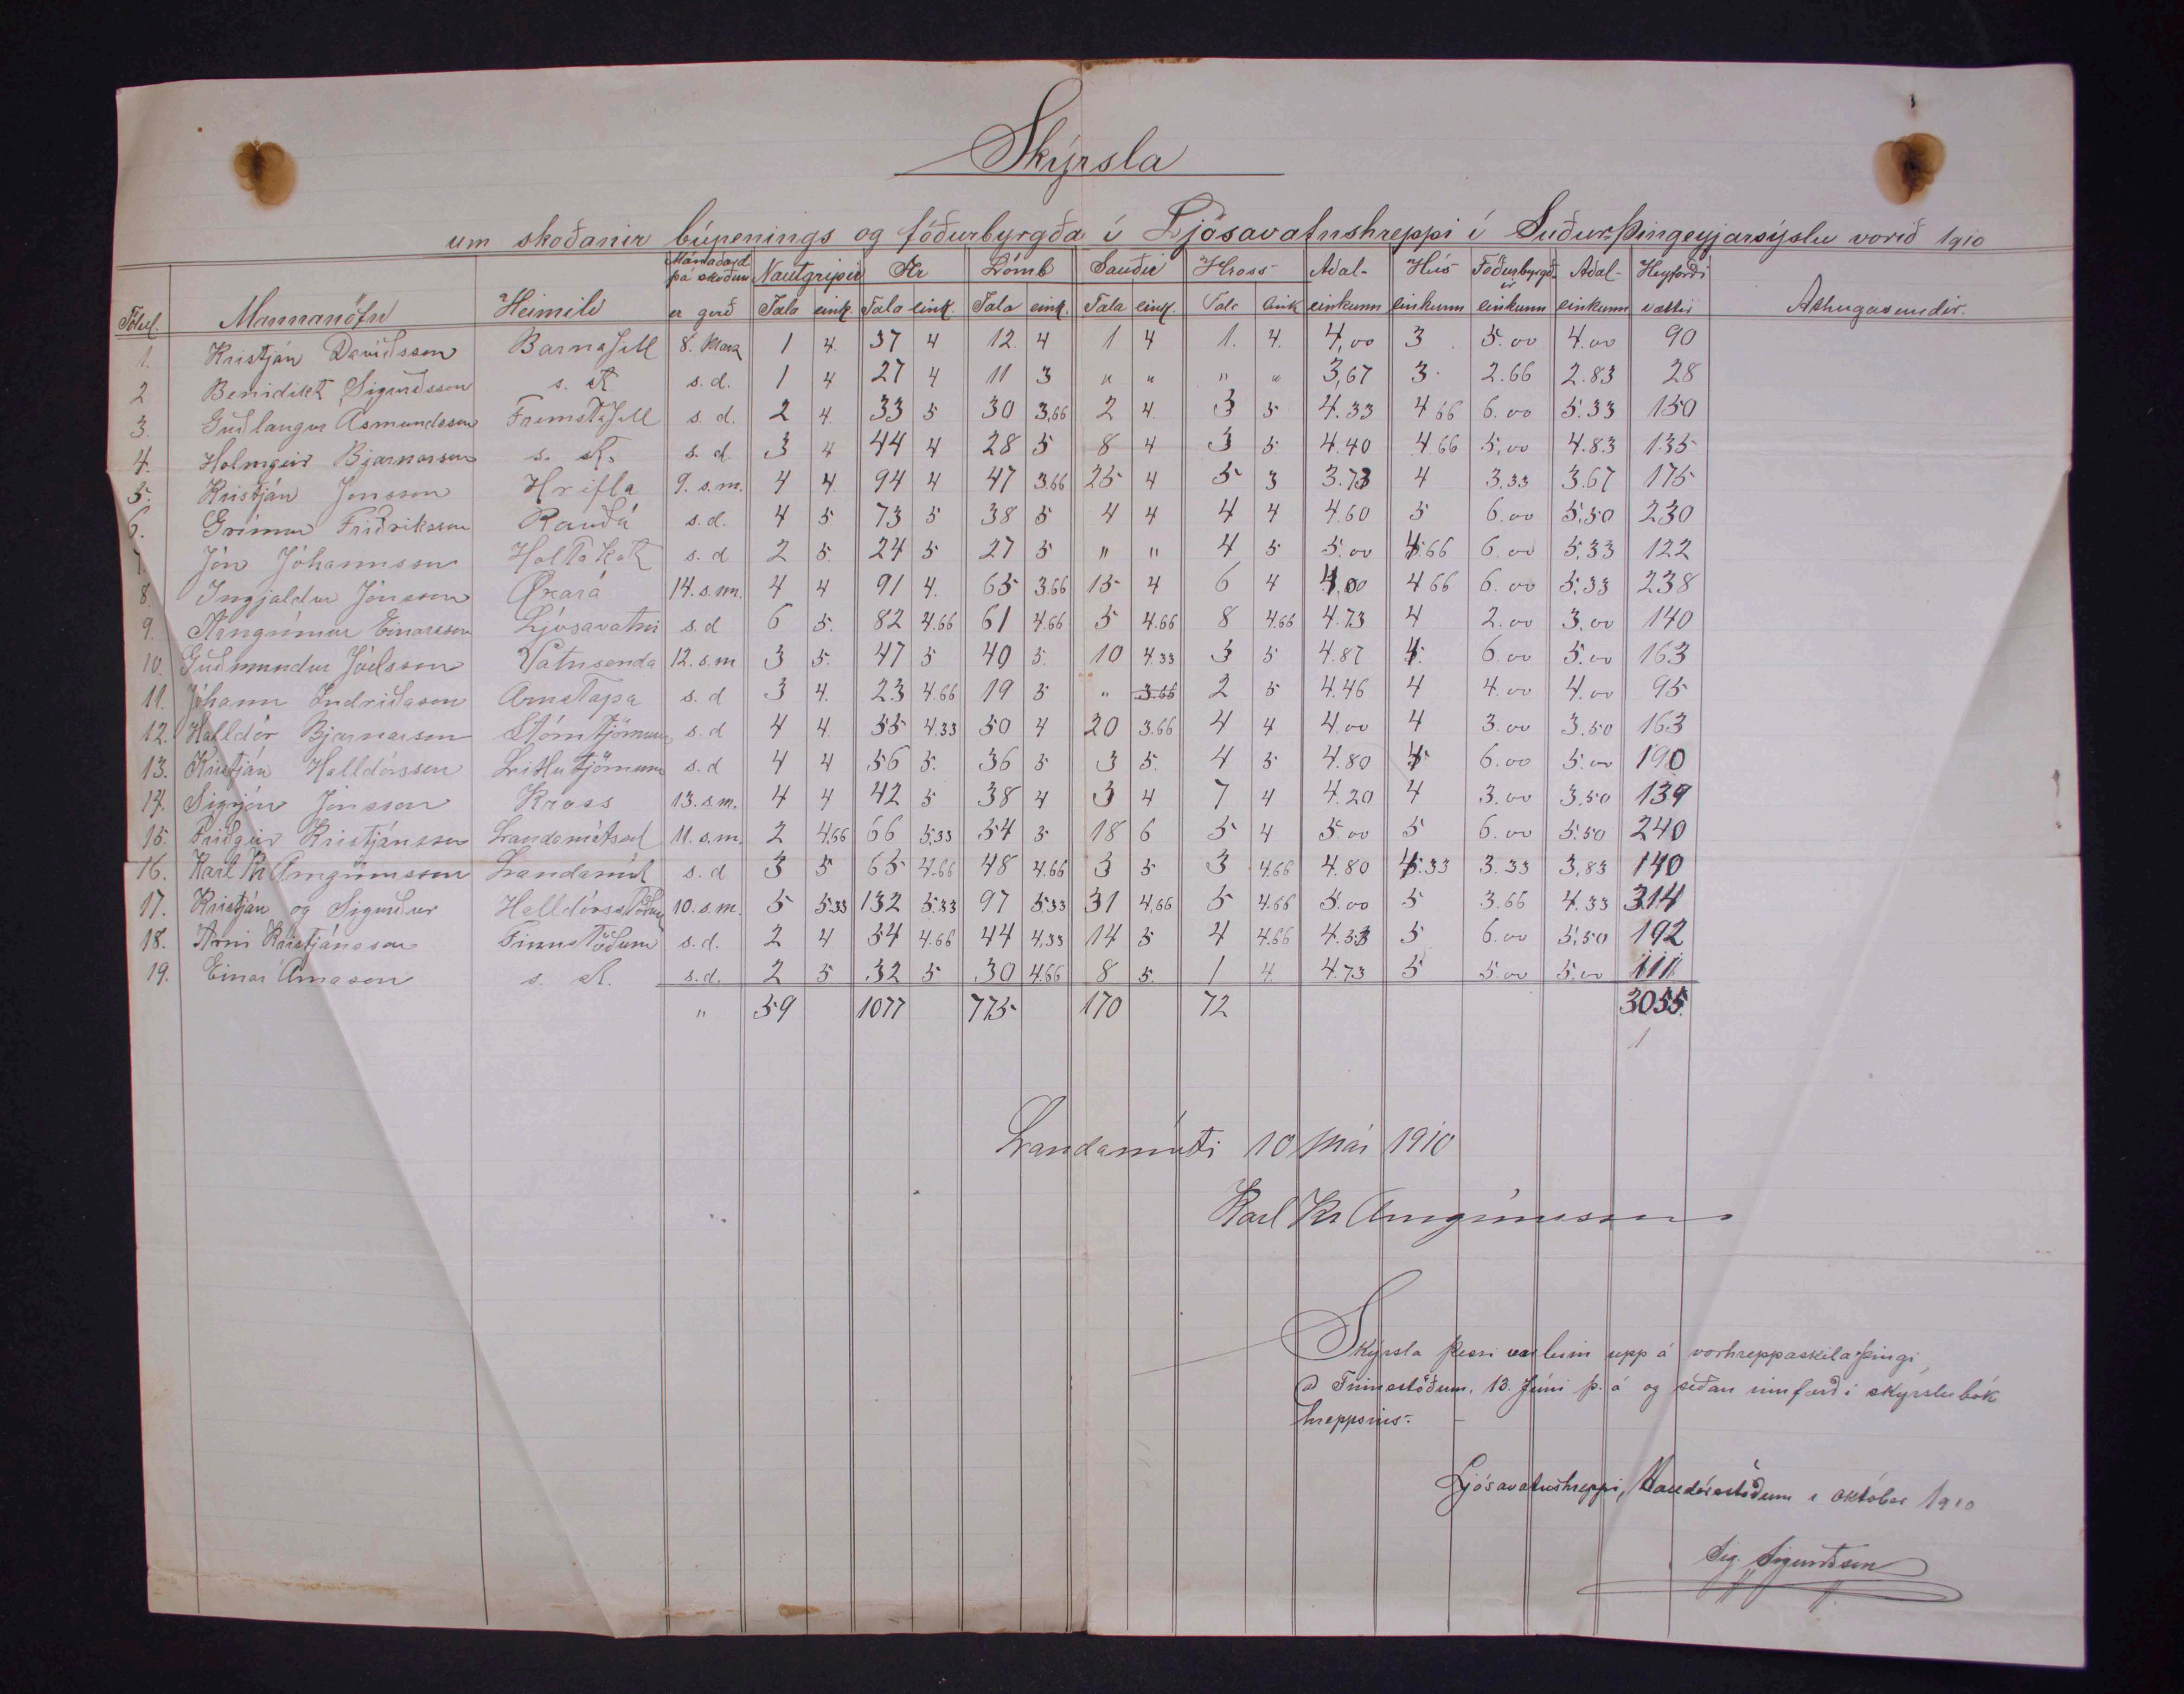 Skýrsla
um skoðanir búpenings og fóðurbyrgða í Ljósavatnshreppi í Suður-Þingeyjarsýslu vorið 1910
Mánaðard. þá skoðun er gerð Nautgripir Ær Lömb Sauðir Hross Aðal- Hús Fóðurbyrgð- Aðal- Heyforði
Tölul. Mannanöfn Heimili Tala eink. Tala eink. Tala eink. Tala eink. Tala eink einkunn einkunn einkunn einkunn vættir Athugasemdir.
1. Kristján Davíðsson Barnafell 8. Marz 1 4. 37 4 12. 4 1 4 1. 4. 4,00 3. 5.00 4.00 90
2 Benidikt Sigurðsson s. st s.d. 1 4 27 4 11 3 " " " " 3,67 3. 2.66 2.83 28
3. Guðlaugur Asmundsson Fremstafell s. d. 2 4. 33 5 30 3,66 2 4. 3 5 4.33 4 66 6.00 5.33 150
4. Holmgeir Bjarnarson s. st. s. d. 3 4 44 4 28 5 8 4 3 5. 4.40 4 66 5,00 4.83 135
5. Kristján Jonsson Hrifla 9. s.m. 4 4. 94 4 47 3.66 25 4 5 3 3.73 4 3,33 3.67 175
6. Grímur Friðriksson Rauðá s.d. 4 5 73 5 38 5 4 4 4 4 4.60 5 6.00 5.50 230
7 Jón Jóhannsson Holtakot s.d 2 5. 24 5 27 5 " " 4 5 5.00 4.66 6.00 5,33 122
8. Ingjaldur Jónsson Öxará 14. s.m. 4 4 91 4. 65 3.66 15 4 6 4 4.00 4 66 6.00 5.33 238
9. Arngrímur Einarsson Ljósavatni s.d 6 5. 82 4.66 61 4.66 5 4.66 8 4.66 4.73 4 2.00 3.00 140
10. Guðmundur Jóelsson Vatnsenda 12. s.m 3 5. 47 5 40 5. 10 4.33 3 5 4.87 4. 6.00 5.00 163
11. Jóhann Indriðason Arnstapa s.d 3 4. 23 4.66 19 5 " 3.66 2 5 4.46 4 4.00 4.00 95
12. Halldór Bjarnarson Stórutjörnum s.d 4 4. 55 4.33 50 4 20 3.66 4 4 4.00 4 3.00 3.50 163
13. Kristján Halldórsson Litlutjörnum s.d 4 4 56 5. 36 5 3 5. 4 5 4.80 4 6.00 5.00 190
14. Sigrjón Jónsson Kross 13. s.m. 4 4 42 5 38 4 3 4 7 4 4.20 4 3.00 3.50 139
15. Friðgeir Kristjánsson Landamótssel 11. s.m. 2 4,66 66 5,33 54 5 18 6 5 4 5.00 5 6.00 5.50 240
16. Karl Kr Arngrímsson Landamót s.d 3 5 65 4.66 48 4.66 3 5 3 4.66 4.80 4.33 3.33 3,83 140
17. Kristján og Sigurður Halldórsstöðum 10. s.m. 5 5.33 132 5.33 97 5.33 31 4,66 5 4.66 5.00 5 3.66 4.33 314
18. Árni Kristjánsson Finnstöðum s.d. 2 4 54 4.66 44 4,33 14 5 4 4.66 4.53 5 6.00 5,50 192
19. Einar Arnason s. st. s.d. 2 5 32 5 30 4.66 8 5. 1 4. 4.73 5 5.00 5.00 111
" 59 1077 775 170 72 3055.
Landamóti 10 Mai 1910
Karl Kr Arngrímsson
Skýrsla þessi var lesin upp á vorhreppaskilaþingi,
að Finnstöðum, 13. Júní þ.á og síðan innfærð í skýrslubók
hreppsins.-
Ljósavatnshreppi, Halldórsstöðum í október 1910
Sig. Sigurðsson